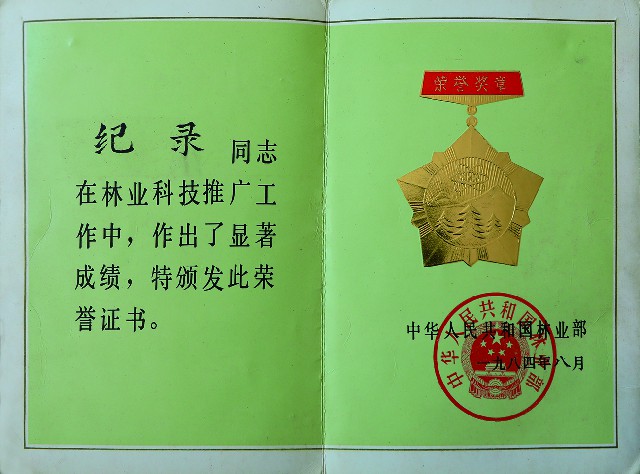 纪录 同志
在林业科技推广工
作中，作出了显著
成绩，特颁发此荣
誉证书。
荣誉奖章
中华人民共和国林业部
一九八四年八月
中华人民共和国林业部